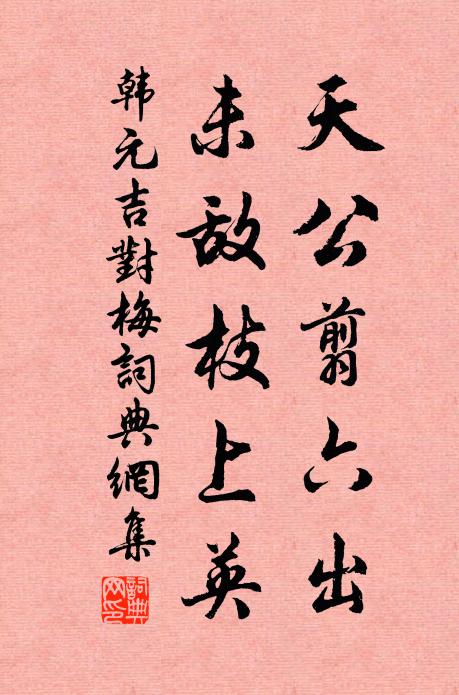 天公翦六出
未敌枝上英
韩元吉對梅詞典網集
詞典網印